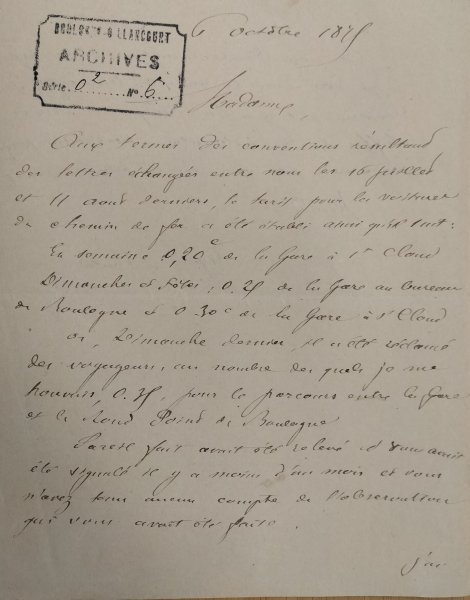 6 Octobre 1875
BOULOGNE-BILLANCOURT
ARCHIVES
Série O2 N° 6
Madame,
Aux termes des conventions résultant
des lettres échangées entre nous les 16 juillet
et 11 août derniers, le tarif pour les voitures
du chemin de fer a été établi ainsi qu'il suit :
En semaine 0,20c de la Gare à St Cloud
Dimanches et Fêtes, 0.25 de la Gare au bureau
de Boulogne et 0.30c de la Gare à St Cloud
or, Dimanche dernier, il a été réclamé
des voyageurs, au nombre des quels je me
trouvais, 0.35, pour le parcours entre la Gare
et le Rond Point de Boulogne
Pareil fait avait été relevé et vous avait
été signalé il y a moins d'un mois et vous
n'avez tenu aucun compte de l'observation
qui vous avait été faite.
j'ai